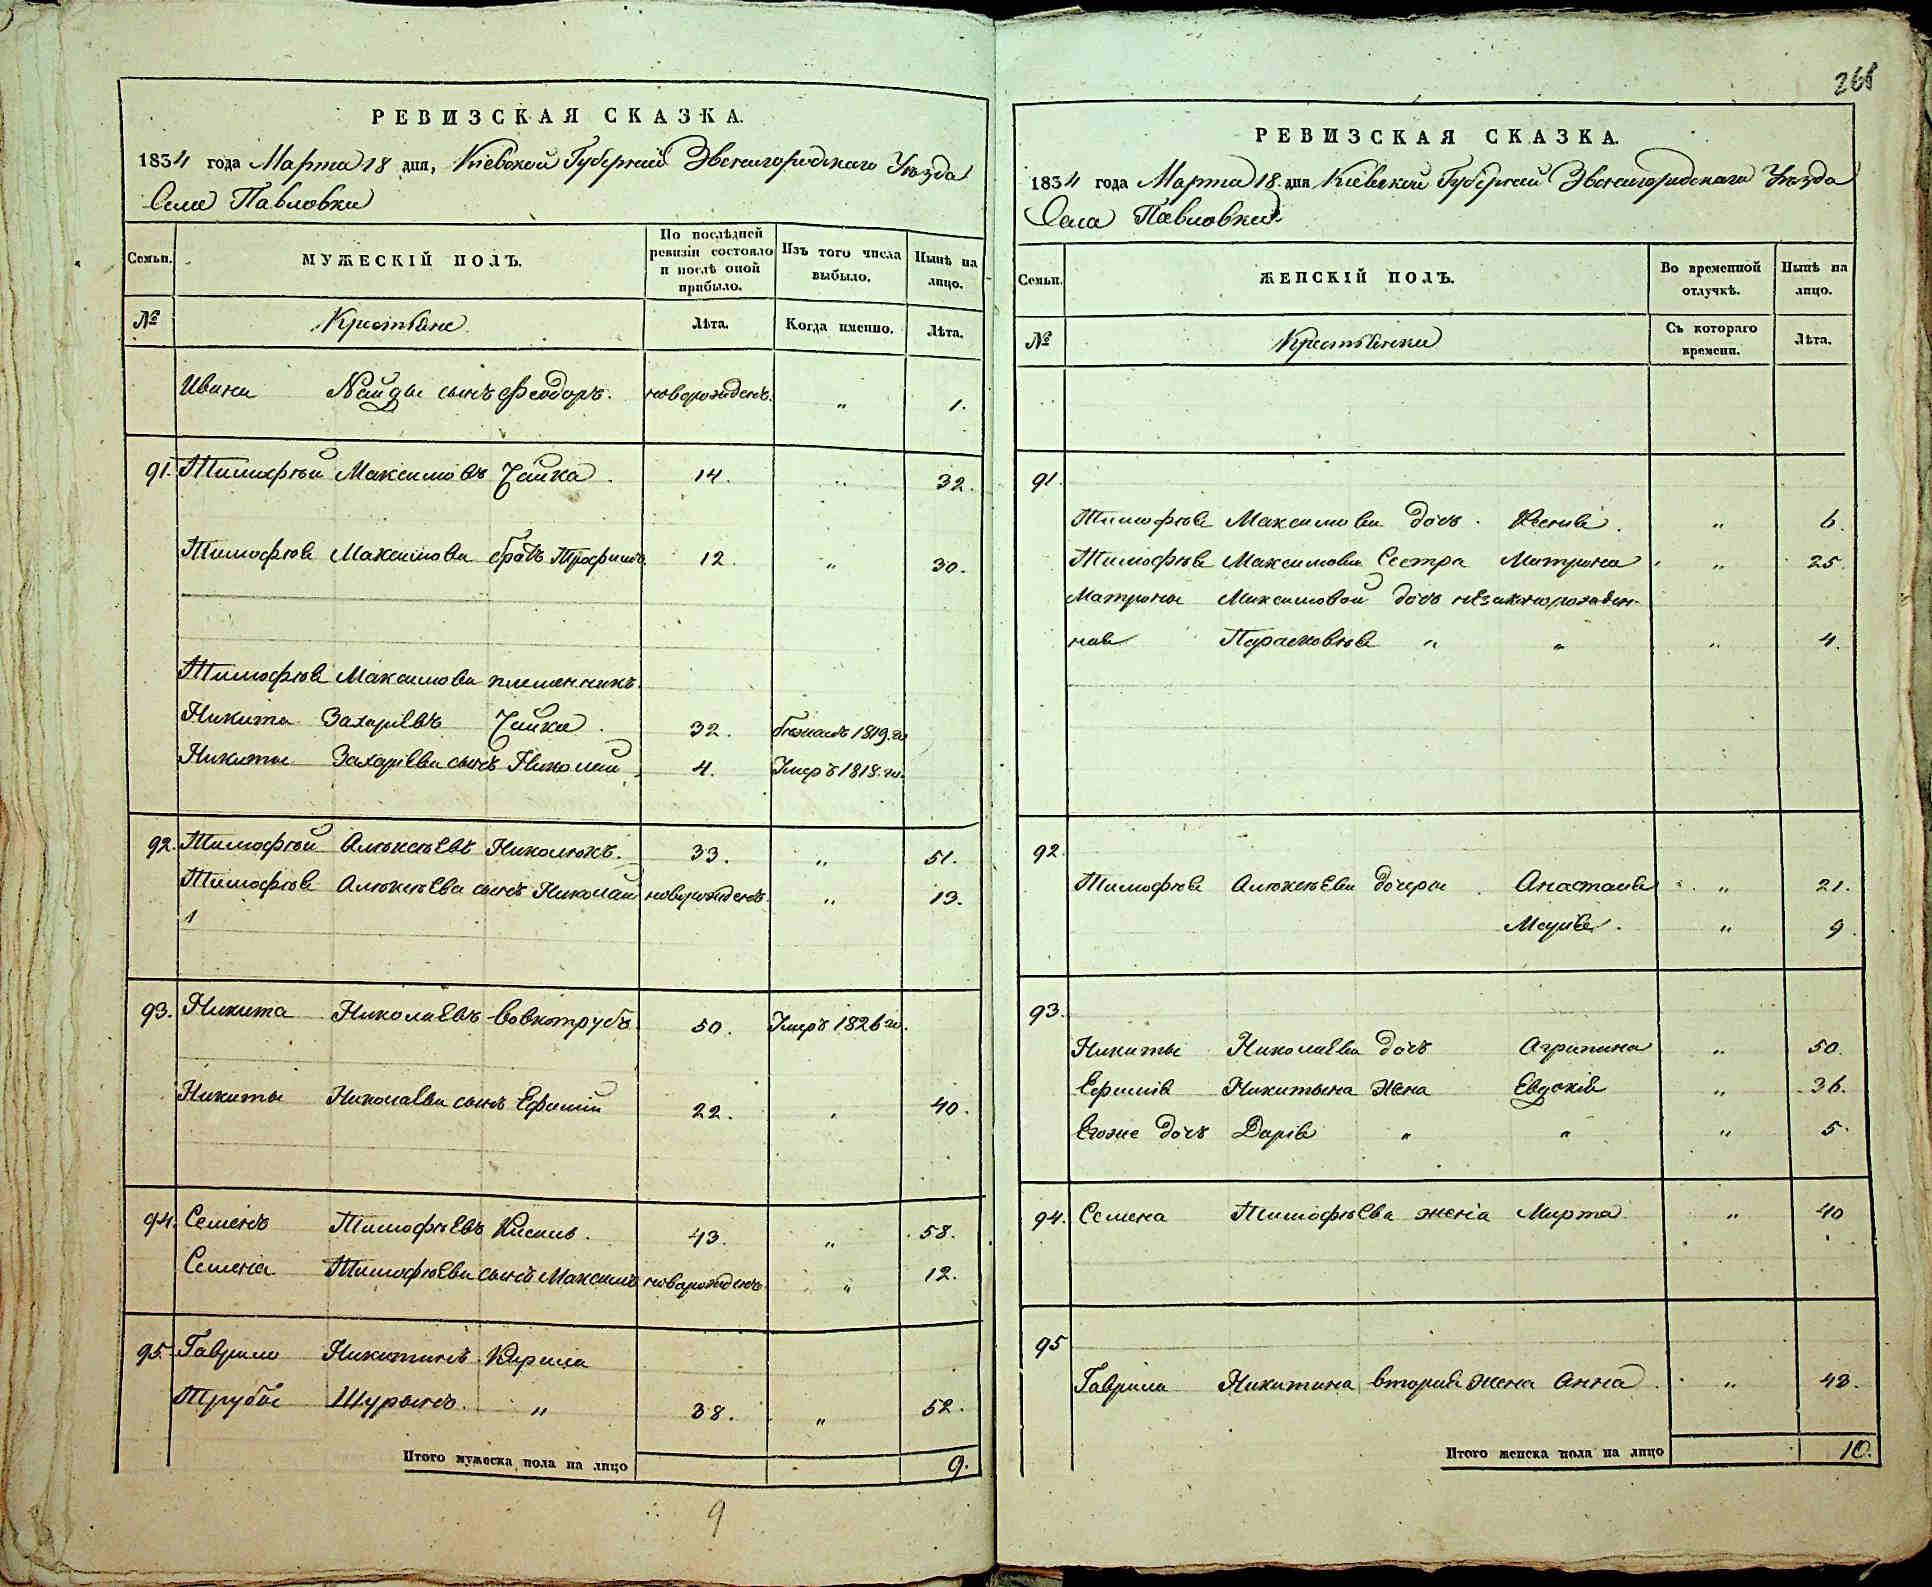 268
РЕВИЗСКАЯ СКАЗКА.
1834 года Марта 18 дня, Кіевской Губерніи Звенигородскаго Уѣзда
Села Павловки
Семьи.
МУЖЕСКІЙ ПОЛЪ.
По послѣдней ревизіи состояло и послѣ оной прибыло.
Изъ того числа выбыло.
Нынѣ на лицо.
№
Крестьяне
Лѣта.
Когда именно.
Лѣта.
Ивана Найды сынъ Феодоръ. новорожденъ. „ 1.
91. Тимофѣй Максимовъ Чайка. 14. „ 32.
Тимофѣя Максимова братъ Трофимъ 12. „ 30.
Тимофѣя Максимова племянникъ
Никита Захаріевъ Чайка. 32. бѣжалъ 1819. го
Никиты Захаріева сынъ Николай 4. Умеръ 1818. го.
92. Тимофѣй Алексѣевъ Николюкъ. 33. „ 51.
Тимофѣя Алексѣева сынъ Николай новорожденъ. „ 13.
1
93. Никита Николаевъ Вовкотрубъ 50. Умеръ 1826 го.
Никиты Николаева сынъ Ефимій 22. „ 40.
94. Семенъ Тимофѣевъ 43. „ 58.
Семена Тимофѣева сынъ Максимъ новорожденъ „ 12.
95. Гаврило Никитинъ Кирила
Трубы Шурынъ. „ 38. „ 52.
Итого мужеска пола на лицо 9.
9
РЕВИЗСКАЯ СКАЗКА.
1834 года Марта 18 дня Кіевской Губерніи Звенигородскаго Уѣзда
Села Павловки.
Семьи.
ЖЕНСКІЙ ПОЛЪ.
Во временной отлучкѣ.
Нынѣ на лицо.
№
Крестьянки
Съ котораго времени.
Лѣта.
91.
Тимофѣя Максимова дочь Ксенія. „ 6.
Тимофѣя Максимова Сестра Матрона „ 25.
Матроны Максимовой дочь незаконорожден-
ная Парасковѣя „ „ „ 4.
92.
Тимофѣя Алексѣева дочери Анастасія „ 21.
Марія. „ 9.
93.
Никиты Николаева дочь Агрипина „ 50.
Ефимія Никитына жена Евдокія „ 36.
Егоже дочь Дарія „ „ „ 5.
94. Семена Тимофѣева жена Марта „ 40
95
Гаврила Никитина вторая жена Анна „ 43.
Итого женска пола на лицо 10.